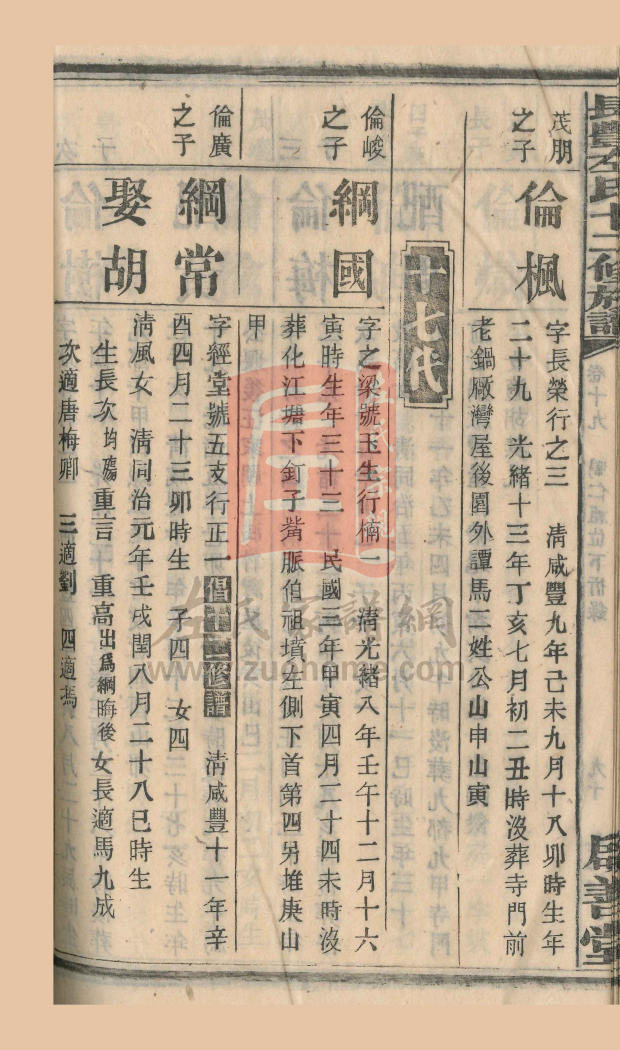 長豐左氏十二修族譜
卷十九
九十
啟善堂
茂朋之子
倫楓
字長榮行之三　清咸豐九年己未九月十八卯時生年
二十九　光緒十三年丁亥七月初二丑時沒葬寺門前
老鍋厰灣屋後園外譚馬二姓公山申山寅
十七代
倫峻之子
綱國
字之梁號玉生行楠一　清光緒八年壬午十二月十六
寅時生年三十三　民國三年甲寅四月二十四未時沒
葬化江塘下釘子觜脈伯祖墳左側下首第四另堆庚山
甲
倫廣之子
綱常
字經堂號五支行正一　倡十二修譜　清咸豐十一年辛
酉四月二十三卯時生　子四　女四
娶胡
清風女　清同治元年壬戌閏八月二十八巳時生
生長次均殤重言　重高出為綱晦後女長適馬九成
次適唐梅卿　三適劉　四適馬
左氏家譜網
www.zuohome.com